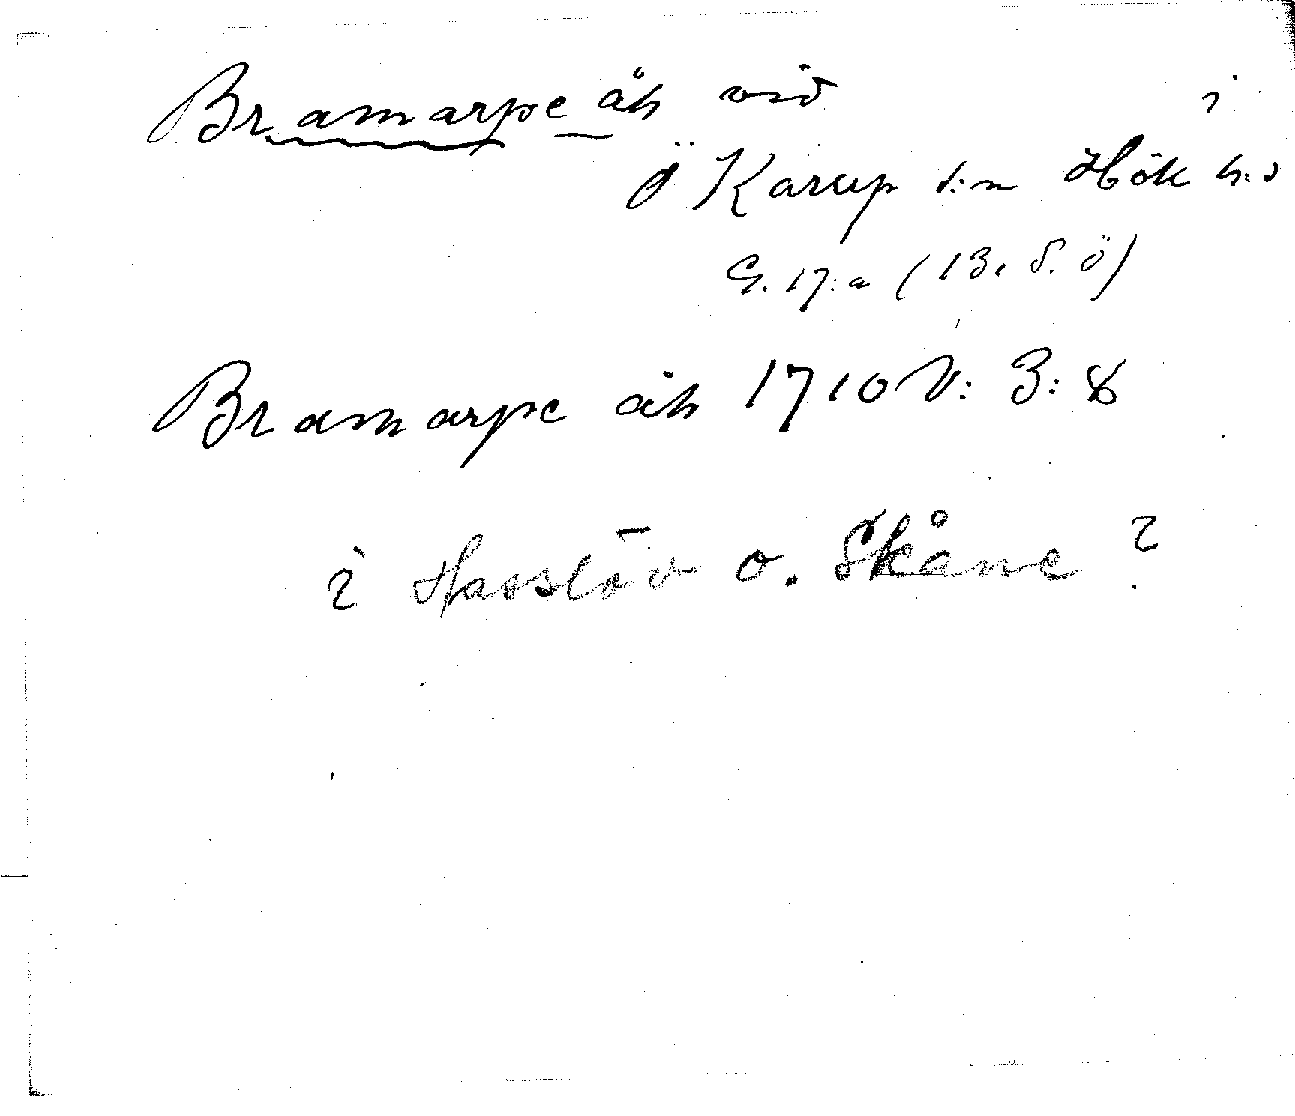 Bramarpe åh vid
i
Ö Karup s:n Hök h:d
G. 17:a (13. S. Ö)
Bramarpe åh 1710 V: 3: 8
i Hasslöv o. Skåne ?